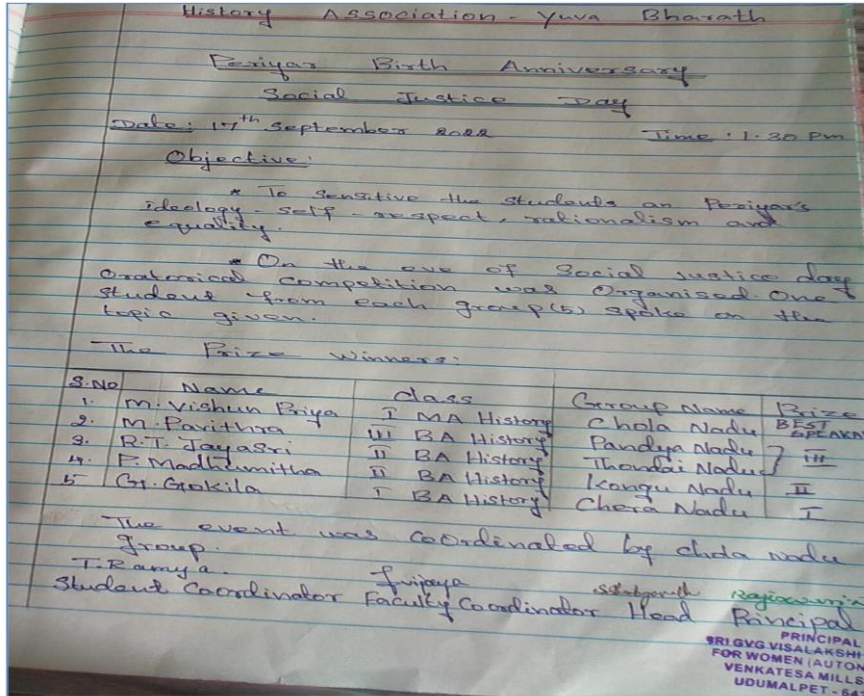 History Association - Yuva Bharath
Periyar Birth Anniversary
Social Justice Day
Date: 17th September 2022 Time: 1.30 Pm
Objective:
* To sensitive the students an Periyar's
ideology - self - respect, rationalism and
equality.
* On the eve of Social Justice day
Oratorical Competition was Organised. One
student from each group (5) spoke on the
topic given.
The Prize winners:
S.No Name class Group Name Prize
1. M. Vishun Priya I MA History Chola Nadu BEST SPEAKER
2. M. Pavithra III BA History Pandya Nadu III
3. R.T. Jayasri II BA History Thondai Nadu
4. P. Madhumitha II BA History Kongu Nadu II
5 G. Gokila I BA History Chera Nadu I
The event was coordinated by chola nadu
group.
T. Ramya.
Student Coordinator Faculty Coordinator Head Principal
PRINCIPAL
SRI GVG VISALAKSHI
FOR WOMEN (AUTON
VENKATESA MILLS
UDUMALPET -